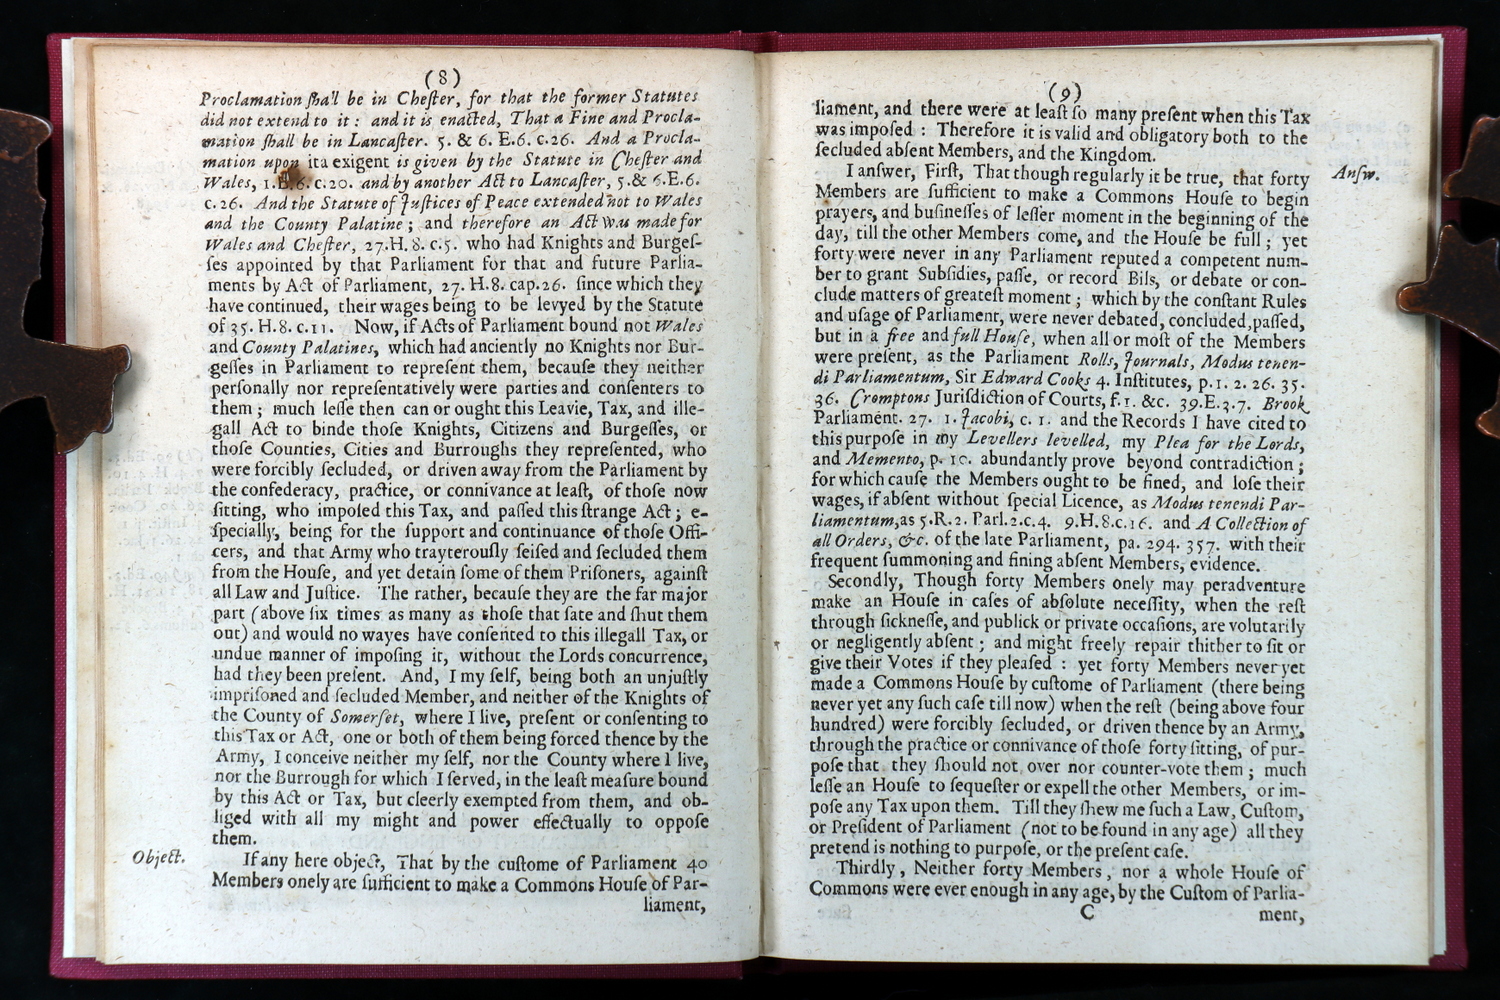 (8)
Proclamation ſhall be in Cheſter, for that the former Statutes
did not extend to it : and it is enacted, That a Fine and Procla-
mation ſhall be in Lancaſter. 5. & 6. E.6. c.26. And a Procla-
mation upon ita exigent is given by the Statute in Cheſter and
Wales, 1.E.6. c.20. and by another Act to Lancaſter, 5.& 6.E.6.
c.26. And the Statute of Juſtices of Peace extended not to Wales
and the County Palatine ; and therefore an Act was made for
Wales and Cheſter, 27.H.8. c.5. who had Knights and Burgeſ-
ſes appointed by that Parliament for that and future Parlia-
ments by Act of Parliament, 27. H.8. cap.26. ſince which they
have continued, their wages being to be levyed by the Statute
of 35. H.8. c.11. Now, if Acts of Parliament bound not Wales
and County Palatines, which had anciently no Knights nor Bur-
geſſes in Parliament to repreſent them, becauſe they neither
perſonally nor repreſentatively were parties and conſenters to
them ; much leſſe then can or ought this Leavie, Tax, and ille-
gall Act to binde thoſe Knights, Citizens and Burgeſſes, or
thoſe Counties, Cities and Burroughs they repreſented, who
were forcibly ſecluded, or driven away from the Parliament by
the confederacy, practice, or connivance at leaſt, of thoſe now
ſitting, who impoſed this Tax, and paſſed this ſtrange Act ; e-
ſpecially, being for the ſupport and continuance of thoſe Offi-
cers, and that Army who trayterouſly ſeiſed and ſecluded them
from the Houſe, and yet detain ſome of them Priſoners, againſt
all Law and Juſtice. The rather, becauſe they are the far major
part (above ſix times as many as thoſe that ſate and ſhut them
out) and would no wayes have conſented to this illegall Tax, or
undue manner of impoſing it, without the Lords concurrence,
had they been preſent. And, I my ſelf, being both an unjuſtly
impriſoned and ſecluded Member, and neither of the Knights of
the County of Somerſet, where I live, preſent or conſenting to
this Tax or Act, one or both of them being forced thence by the
Army, I conceive neither my ſelf, nor the County where I live,
nor the Burrough for which I ſerved, in the leaſt meaſure bound
by this Act or Tax, but cleerly exempted from them, and ob-
liged with all my might and power effectually to oppoſe
them.
Object.
If any here object, That by the cuſtome of Parliament 40
Members onely are ſufficient to make a Commons Houſe of Par-
liament,
(9)
liament, and there were at leaſt ſo many preſent when this Tax
was impoſed : Therefore it is valid and obligatory both to the
ſecluded abſent Members, and the Kingdom.
Anſw.
I anſwer, Firſt, That though regularly it be true, that forty
Members are ſufficient to make a Commons Houſe to begin
prayers, and buſineſſes of leſſer moment in the beginning of the
day, till the other Members come, and the Houſe be full ; yet
forty were never in any Parliament reputed a competent num-
ber to grant Subſidies, paſſe, or record Bils, or debate or con-
clude matters of greateſt moment ; which by the conſtant Rules
and uſage of Parliament, were never debated, concluded, paſſed,
but in a free and full Houſe, when all or moſt of the Members
were preſent, as the Parliament Rolls, Journals, Modus tenen-
di Parliamentum, Sir Edward Cooks 4. Inſtitutes, p.1. 2. 26. 35.
36. Cromptons Jurisdiction of Courts, f.1. &c. 39.E.3.7. Brook
Parliament. 27. 1. Jacobi, c. 1. and the Records I have cited to
this purpoſe in my Levellers levelled, my Plea for the Lords,
and Memento, p. 10. abundantly prove beyond contradiction ;
for which cauſe the Members ought to be fined, and loſe their
wages, if abſent without ſpecial Licence, as Modus tenendi Par-
liamentum, as 5.R.2. Parl.2.c.4. 9.H.8.c.16. and A Collection of
all Orders, &c. of the late Parliament, pa. 294. 357. with their
frequent ſummoning and fining abſent Members, evidence.
Secondly, Though forty Members onely may peradventure
make an Houſe in caſes of abſolute neceſſity, when the reſt
through ſickneſſe, and publick or private occaſions, are volutarily
or negligently abſent ; and might freely repair thither to ſit or
give their Votes if they pleaſed : yet forty Members never yet
made a Commons Houſe by cuſtome of Parliament (there being
never yet any ſuch caſe till now) when the reſt (being above four
hundred) were forcibly ſecluded, or driven thence by an Army,
through the practice or connivance of thoſe forty ſitting, of pur-
poſe that they ſhould not over nor counter-vote them ; much
leſſe an Houſe to ſequeſter or expell the other Members, or im-
poſe any Tax upon them. Till they ſhew me ſuch a Law, Cuſtom,
or Preſident of Parliament (not to be found in any age) all they
pretend is nothing to purpoſe, or the preſent caſe.
Thirdly, Neither forty Members, nor a whole Houſe of
Commons were ever enough in any age, by the Cuſtom of Parlia-
C
ment,